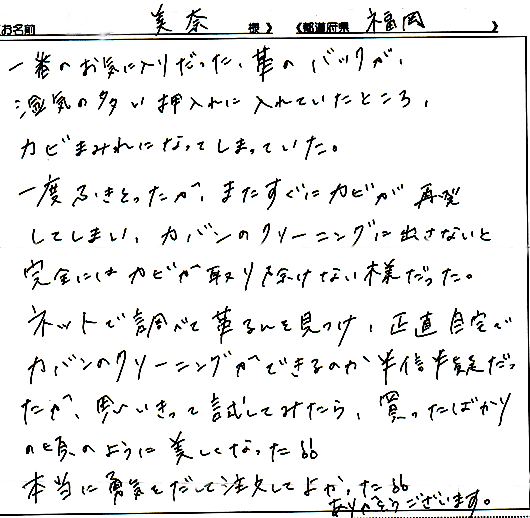 お名前 美奈 様》 《都道府県 福岡 》
一番のお気に入りだった、革のバックが、
湿気の多い押入れに入れていたところ、
カビまみれになってしまっていた。
一度ふきとったが、またすぐにカビが再発
してしまい、カバンのクリーニングに出さないと
完全にはカビが取り除けない様だった。
ネットで調べて革るんを見つけ、正直自宅で
カバンのクリーニングができるのか半信半疑だっ
たが、思いきって試してみたら、買ったばかり
の頃のように美しくなった!!
本当に勇気をだして注文してよかった!!
ありがとうございます。